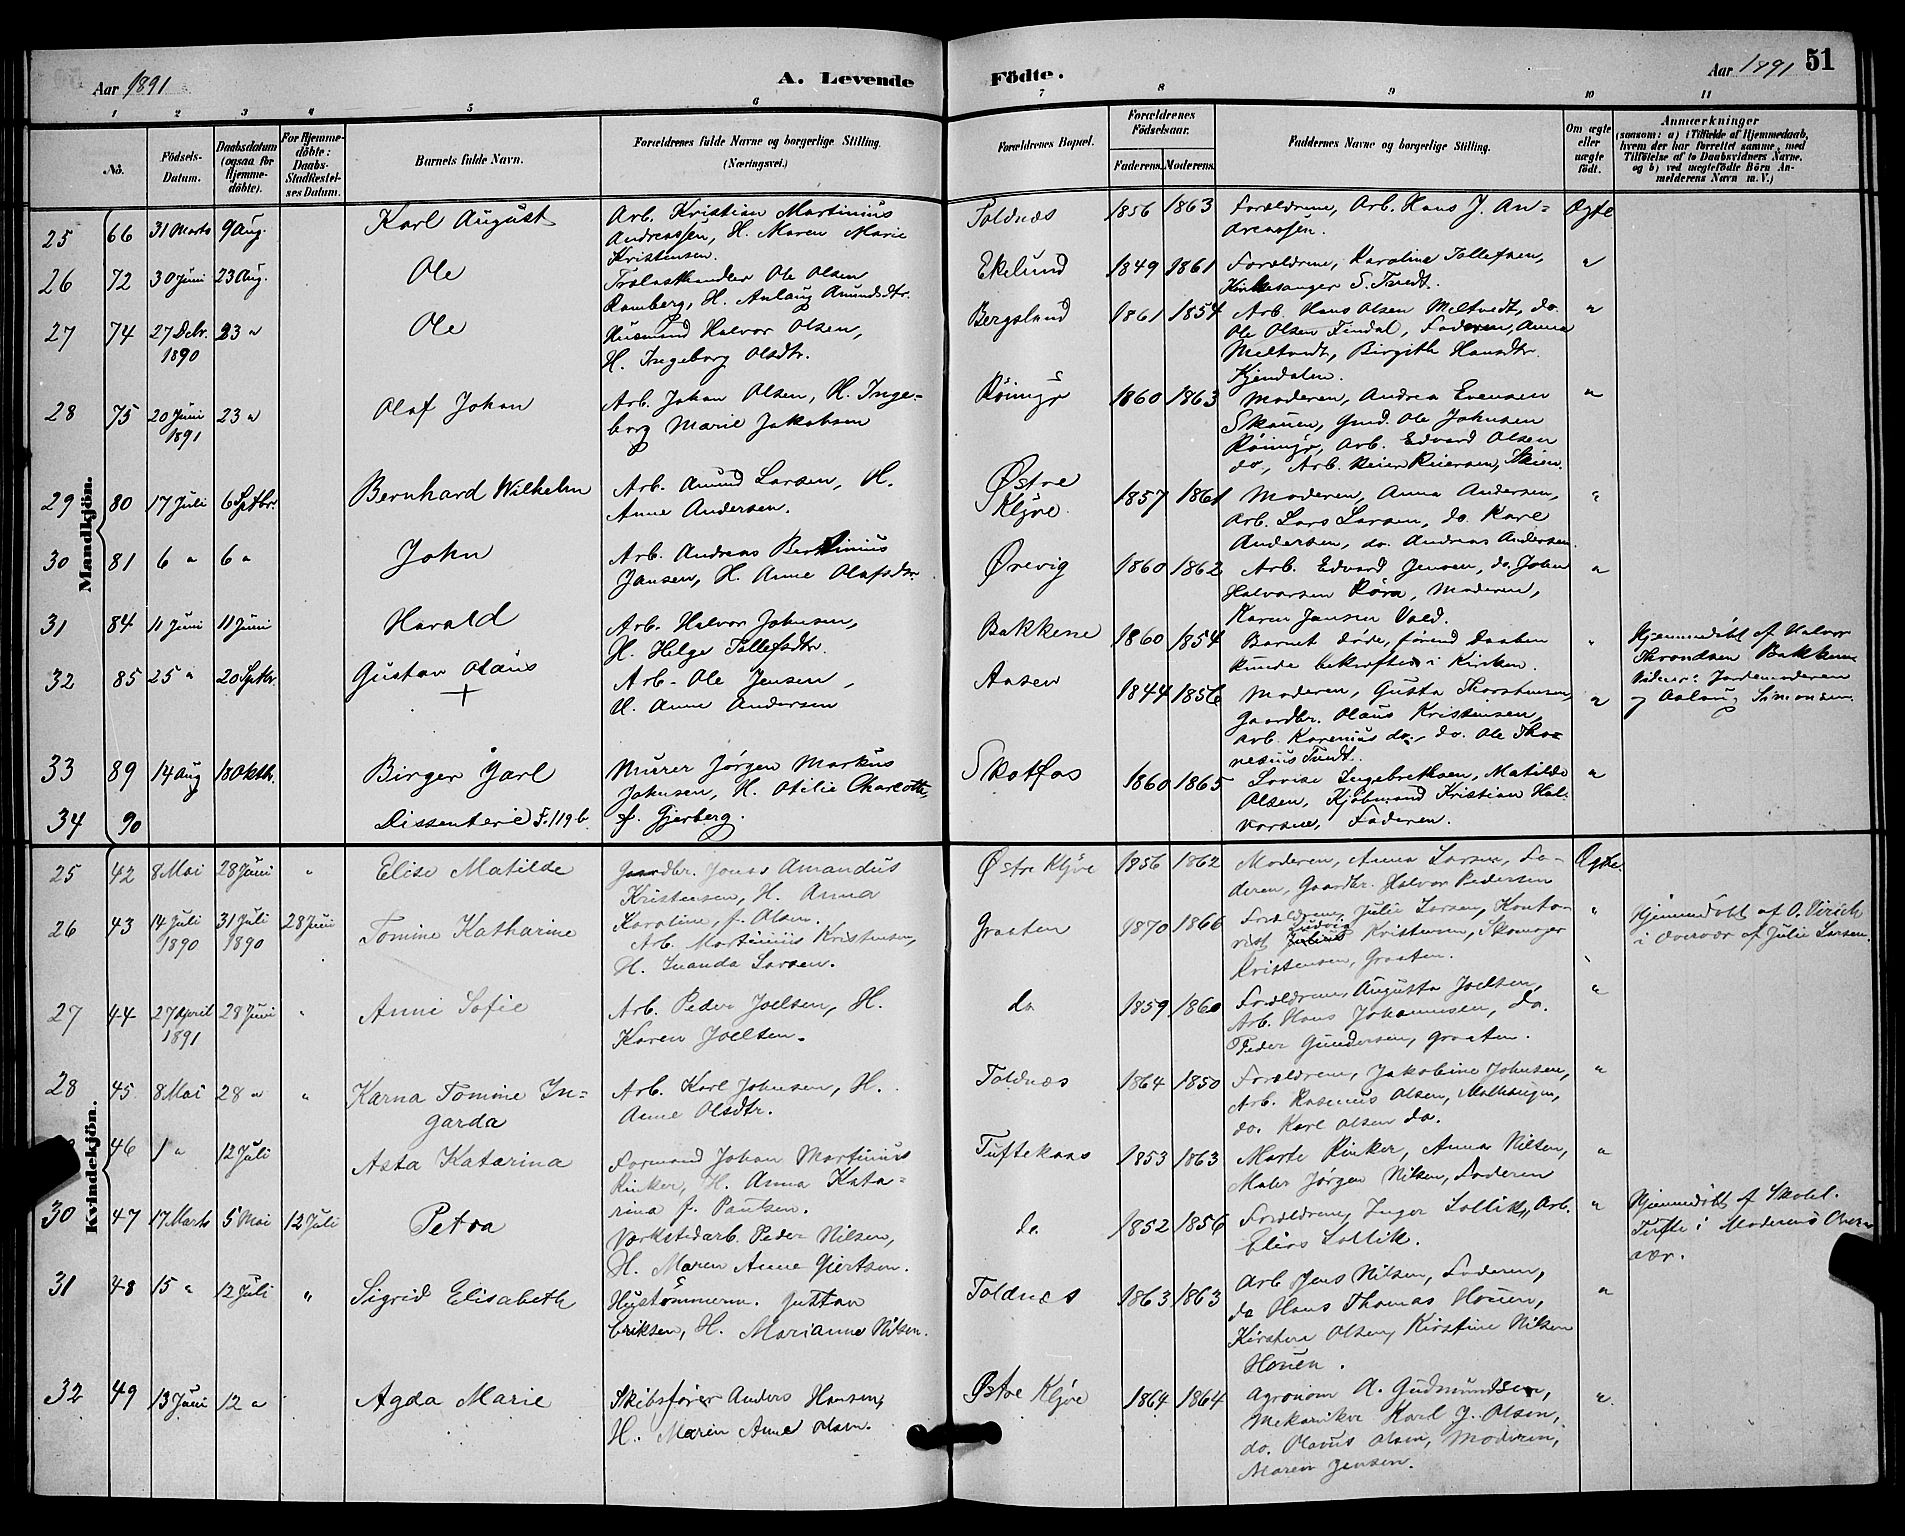 Aar 1891
A. Levende
Födte.
Aar 1891 51
1 2 3 4 5 6 7 8 9 10 11
No.
Födsels-
Datum.
Daabsdatum
(ogsaa for
Hjemme-
döbte).
For Hjemme-
döbte:
Daabs-
Stadfæstel-
ses Datum.
Barnets fulde Navn.
Forældrenes fulde Navne og borgerlige Stilling.
(Næringsvei.)
Forældrenes Bopæl.
Forældrenes
Födselsaar.
Faderens. Moderens.
Faddernes Navne og borgerlige Stilling.
Om ægte
eller
uægte
födt.
Anmærkninger
(saasom: a) i Tilfælde af Hjemmedaab,
hvem der har forrettet samme, med
Tilföielse af to Daabsvidners Navne,
og b) ved uægtefödte Börn An-
melderens Navn m. V.)
Mandkjön.
25 66 31 Marts 9 Aug. Karl August
Arb. Kristian Martinius
Andreassen, H. Maren Marie
Kristensen.
Toldnæs 1856 1863
Forældrene, Arb. Hans J. An-
dreassen.
Ægte
26 72 30 Juni 23 Aug. Ole
Trælasthandler Ole Olsen
Ramberg, H. Anlaug Amundsdtr.
Ekelund 1849 1861
Forældrene, Karoline Tollefsen,
Kirkesanger S. Tvedt.
"
27 74 27 Debr. 23 "
1890
Ole
Husmand Halvor Olsen,
H. Ingeborg Olsdtr.
Bergsland 1861 1854
Arb. Hans Olsen Meltvedt, do.
Ole Olsen Findal, Faderen, Anna
Meltvedt, Birgithe Hansdtr.
Kjendalen.
"
28 75 20 Juni 23 "
1891
Olaf Johan
Arb. Johan Olsen, H. Inge-
borg Marie Jakobsen
Röimyr 1860 1863
Moderen, Andrea Evensen
Skauen, Gmd. Ole Johnsen
Röimyr, Arb. Edvard Olsen
do, Arb. Reier Reiersen, Skien.
"
29 80 17 Juli 6 Septbr. Bernhard Wilhelm
Arb. Amund Larsen, H.
Anne Andersen.
Østre
Klyve. 1857 1861
Moderen, Anna Andersen,
Arb. Lars Larsen, do. Karl
Andersen, do. Andreas Andersen.
"
30 81 6 " 6 " John
Arb. Andreas Bertinius
Jansen, H. Anne Olafsdtr.
Ørevig 1860 1862
Arb. Edvard Jensen, do. John
Halvorsen Röra, Moderen,
Karen Jansen Vold.
"
31 84 11 Juni 11 Juni Harald
Arb. Halvor Johnsen,
H. Helge Tollefsdtr.
Bakkene 1860 1854
Barnet döde, förend Daaben
kunde bekræftes i Kirken.
"
Hjemmedöbt af Halvor
Throndsen Bakkene
Vidner: Jordemoderen
og Aslaug Simonsen.
32 85 25 " 20 Septbr. Gustav Olaus
+
Arb. Ole Jensen,
H. Anne Andersen
Aasen 1844 1856
Moderen, Gusta Thorstensen,
Gaardbr. Olaus Kristensen,
Arb. Karenius do., do. Ole Tho-
nesius Tvedt.
"
33 89 14 Aug 18 Oktbr. Birger Jarl
Murer Jörgen Markus
Johnsen, H. Otilie Charlotte,
f. Gjerberg.
Skotfos 1860 1865
Lovise Ingebrethsen, Matilde
Olsen, Kjöbmand Kristian Hal-
vorsen, Faderen.
"
34 90 Dissenterie F. 119 b.
Kvindekjön.
25 42 8 Mai 28 Juni " Elise Matilde
Gaardbr. Jonas Amandus
Kristensen, H. Anna
Karoline, f. Olsen.
Østre Klyve 1856 1862
Moderen, Anna Larsen, Fa-
deren, Gaardbr. Halvor Pedersen
Ægte.
26 43 14 Juli 31 Juli 28 Juni
1890 1890
Tomine Katharine
Arb. Martinius Kristensen,
H. Inanda Larsen.
Graaten 1870 1866
Forældrene, Julie Larsen, Konto-
rist Ludvig Kristensen, Skomager
Kristensen, Graaten.
"
Hjemmedöbt af O.
i Overvær af Julie Larsen.
27 44 27 April 28 Juni "
1891
Anni Sofie
Arb. Peder Joelsen, H.
Karen Joelsen.
do 1859 1860
Forældrene, Augusta Joelsen,
Arb. Hans Johannesen, do.
Peder Gundersen, Graaten.
"
28 45 8 Mai 28 " " Karna Tomine In-
garda
Arb. Karl Johnsen, H.
Anne Olsdtr.
Toldnæs 1864 1850
Forældrene, Jakobine Johnsen,
Arb. Rasmus Olsen,
do. Karl Olsen do.
"
46 1 " 12 Juli Asta Katarina
Formand Johan Martinius
Rinker, H. Anna Kata-
rina f. Paulsen.
Tuftekaas 1853 1863
Marte Rinker, Anna Nilsen,
Maler Jörgen Nilsen, Faderen
"
30 47 17 Marts 5 Mai 12 Juli Petra
Verkstedarb. Peder Nilsen,
H. Maren Anne Giertsen.
do 1852 1856
Forældrene, Inger Sollik, Arb.
Elias Sollik.
"
Hjemmedöbt af Skolel.
Tufte i Moderens Overv-
ær.
31 48 15 " 12 Juli " Sigrid Elisabeth
Hustömmerm. Gustav
Eriksen, H. Marianne Nilsen.
Toldnæs 1863 1863
Arb Jens Nilsen, Faderen,
do Hans Thomas Houen,
Kirstine Olsen, Kirstine Nilsen
Houen.
"
32 49 13 Juni 12 " Agda Marie
Skibsförer Anders Hansen,
H. Maren Anne Olsen.
Østre Klyve 1864 1864
Agronom A. Gudmundsen,
Mekaniker Karl J. Olsen,
do. Olavus Olsen, Moderen,
Maren Jensen.
"